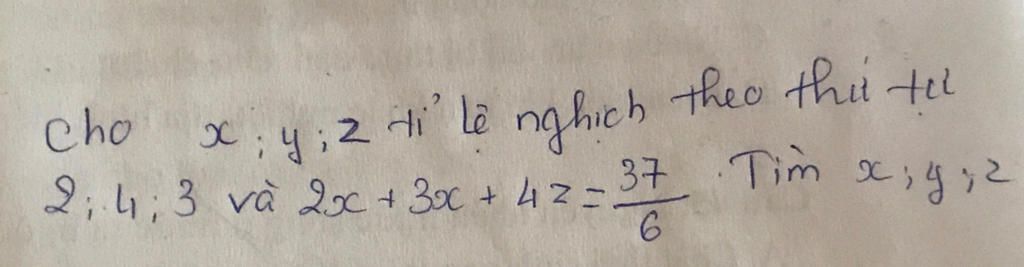 Cho x; y; z tỉ lệ nghịch theo thứ tự
2; 4; 3 và 2x + 3x + 4z = 37/6. Tìm x; y; z